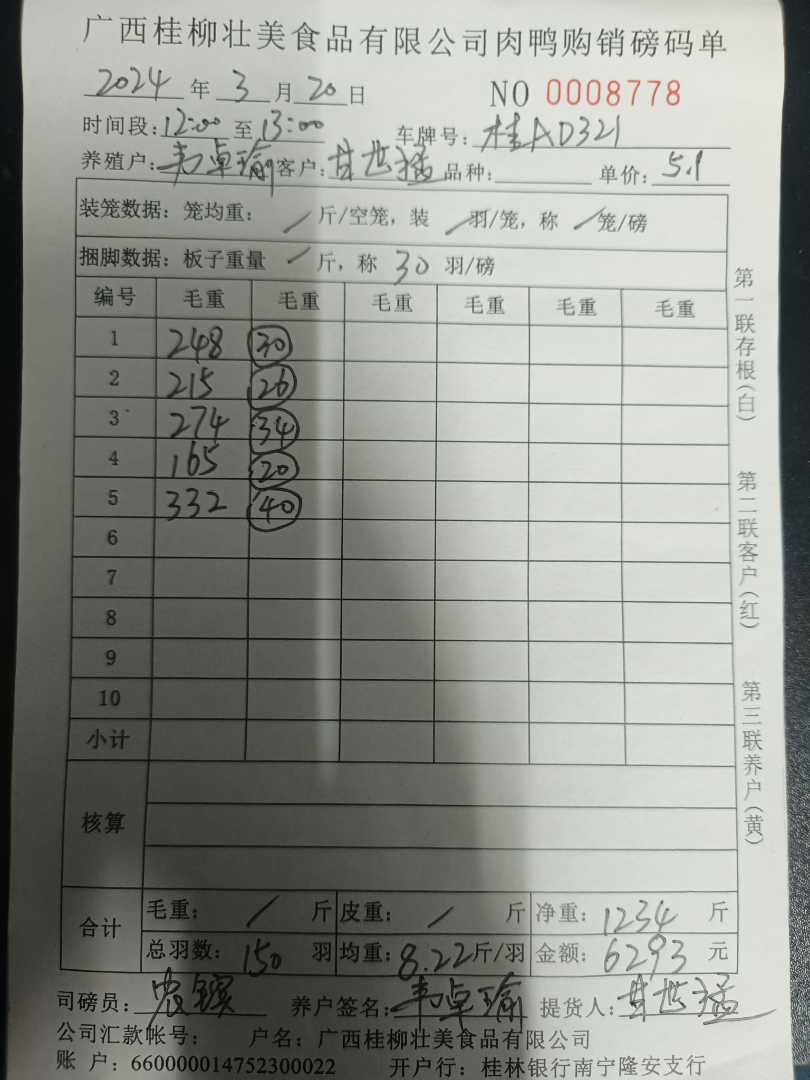 广西桂柳壮美食品有限公司肉鸭购销磅码单
2024年3月20日 NO 0008778
时间段:12:00至13:00 车牌号:桂AD321
养殖户:韦卓瑜 客户:甘世猛 品种: 单价:5.1
装笼数据:笼均重: / 斤/空笼,装 / 羽/笼,称 / 笼/磅
捆脚数据:板子重量 / 斤,称 30 羽/磅
编号 毛重 毛重 毛重 毛重 毛重 毛重
1 248 30
2 215 26
3 274 34
4 165 20
5 332 40
6
7
8
9
10
小计
核算
合计 毛重: / 斤 皮重: / 斤 净重: 1234 斤
总羽数: 150 羽 均重: 8.22 斤/羽 金额: 6293 元
司磅员: 养户签名:韦卓瑜 提货人:甘世猛
公司汇款帐号: 户名:广西桂柳壮美食品有限公司
账 户:660000014752300022 开户行:桂林银行南宁隆安支行
第一联存根(白)
第二联客户(红)
第三联养户(黄)